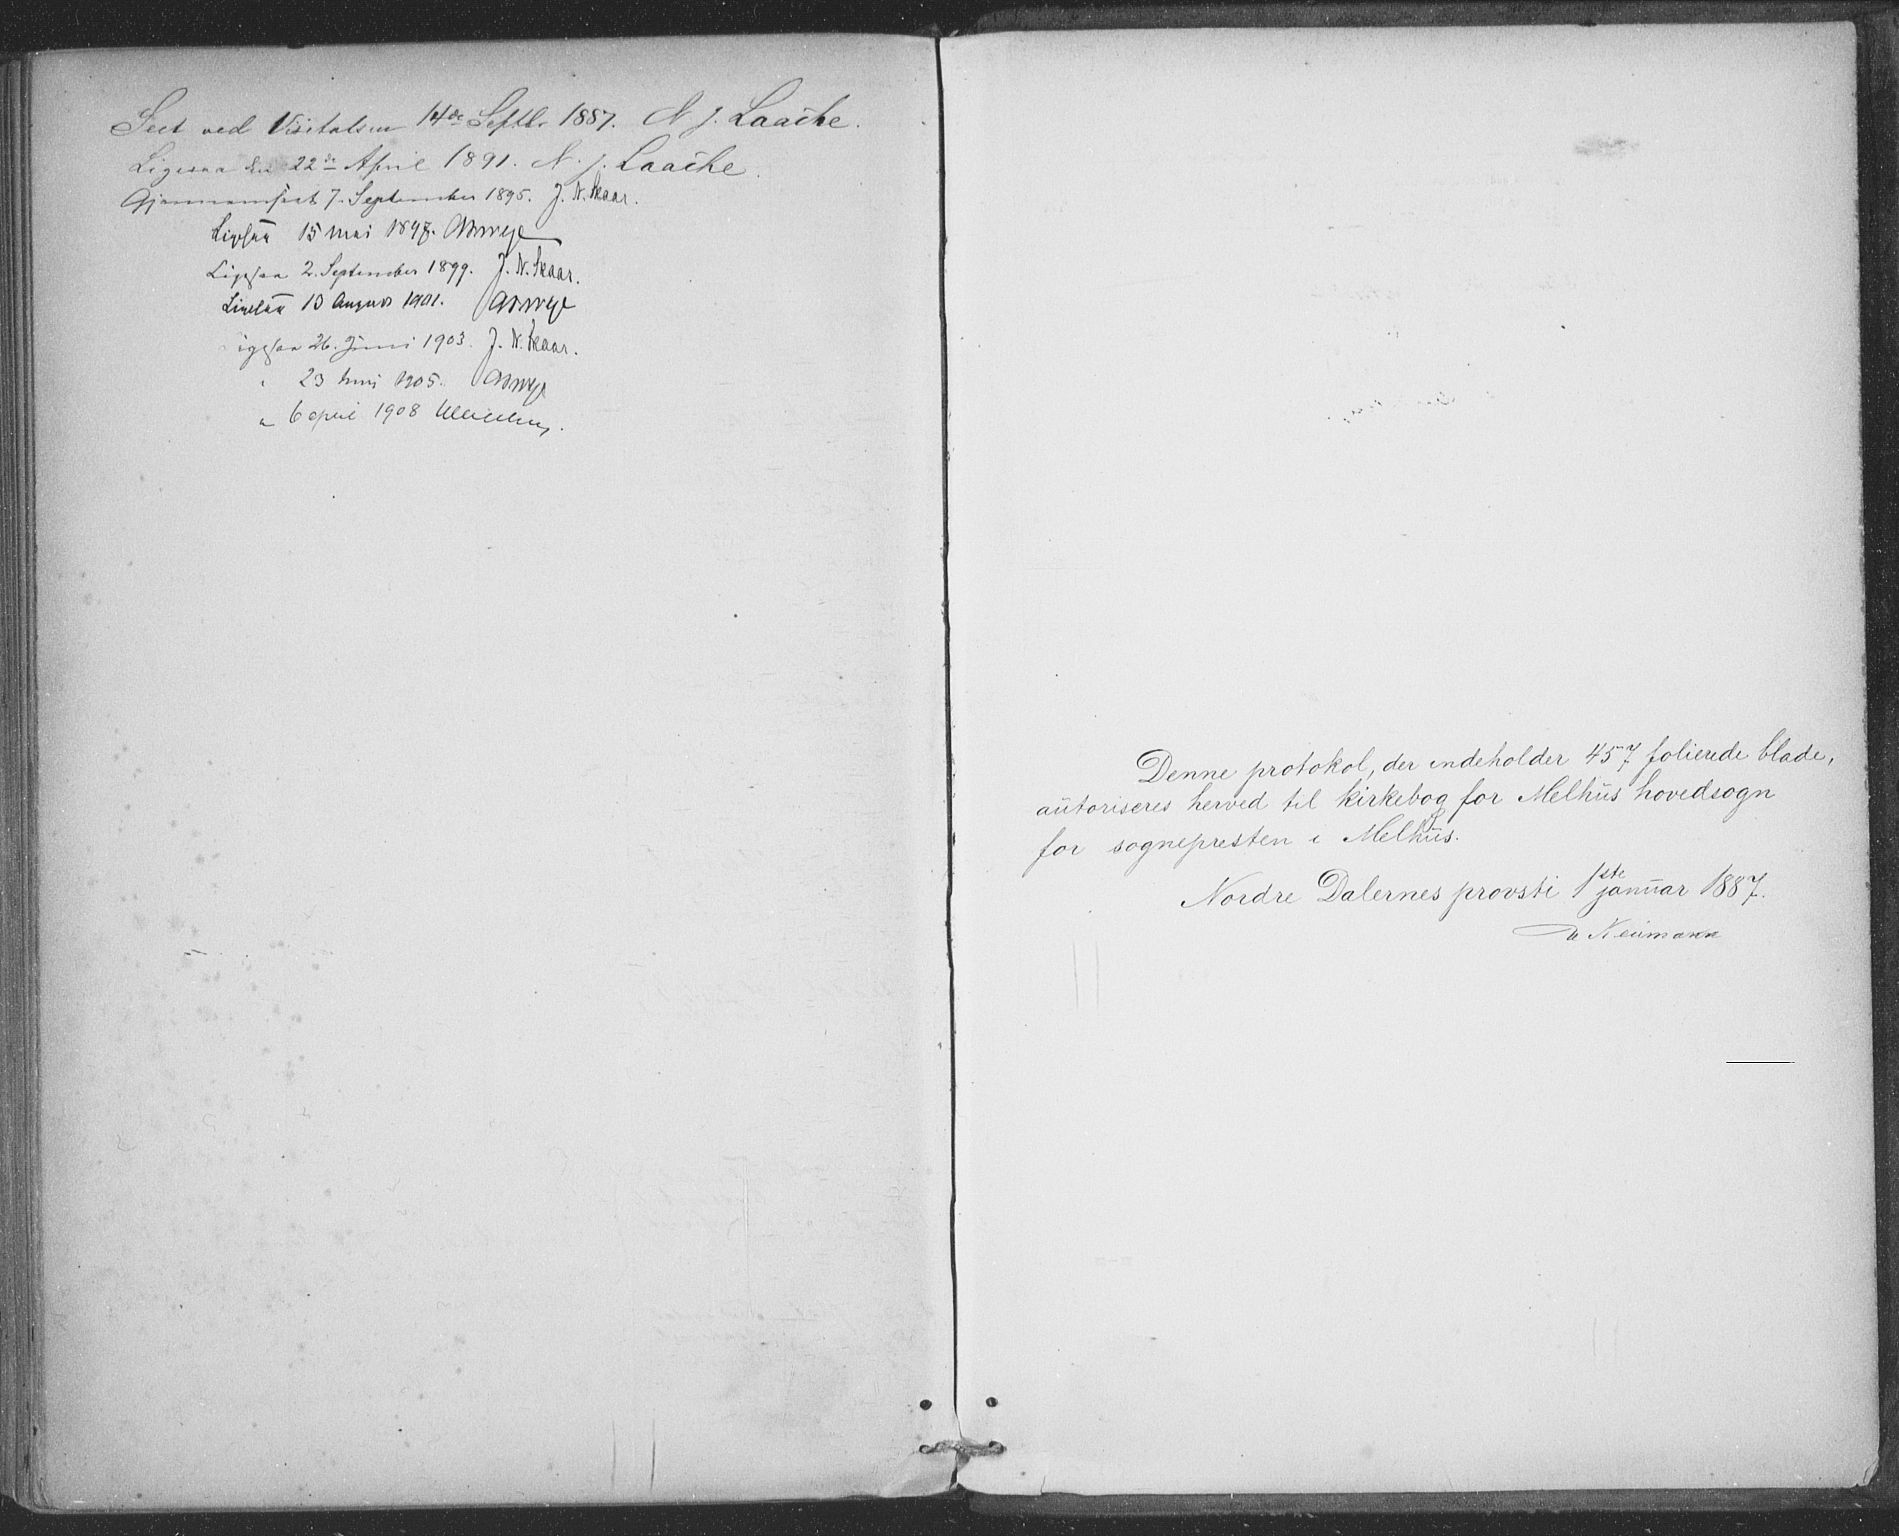 Seet ved Visitatsen 14de Septbr 1887. N. J. Laache.
Ligesaa den 22de April 1891. N. J. Laache.
Gjennemseet 7. September 1895. J. N. Skaar.
Ligesaa 15 mai 1897.
Ligesaa 2. September 1899. J. N. Skaar.
Ligesaa 13 August 1901.
Ligesaa 26. Juni 1903. J. N. Skaar.
" 23 Juni 1905.
" 6 april 1908
Denne protokol, der indeholder 457 folierede blade,
autoriseres herved til kirkebog for Melhus hovedsogn
for sognepresten i Melhus.
Nordre Dalernes provsti 1ste januar 1887.
Neumann